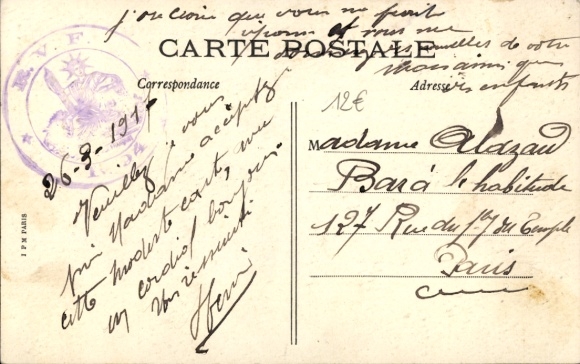 j'ose croire que vous ne
et vous me
nouvelles de votre
ainsi que
les enfants
CARTE POSTALE
Correspondance
Adresse
M.V.F.
12€
26-9-191
Veuillez je vous
prie Madame accepter
cette modeste carte, avec
un cordial bonjour.
Henri
Madame Alazau
Bar à l'habitude
127 Rue du fbg du Temple
Paris
I P M PARIS